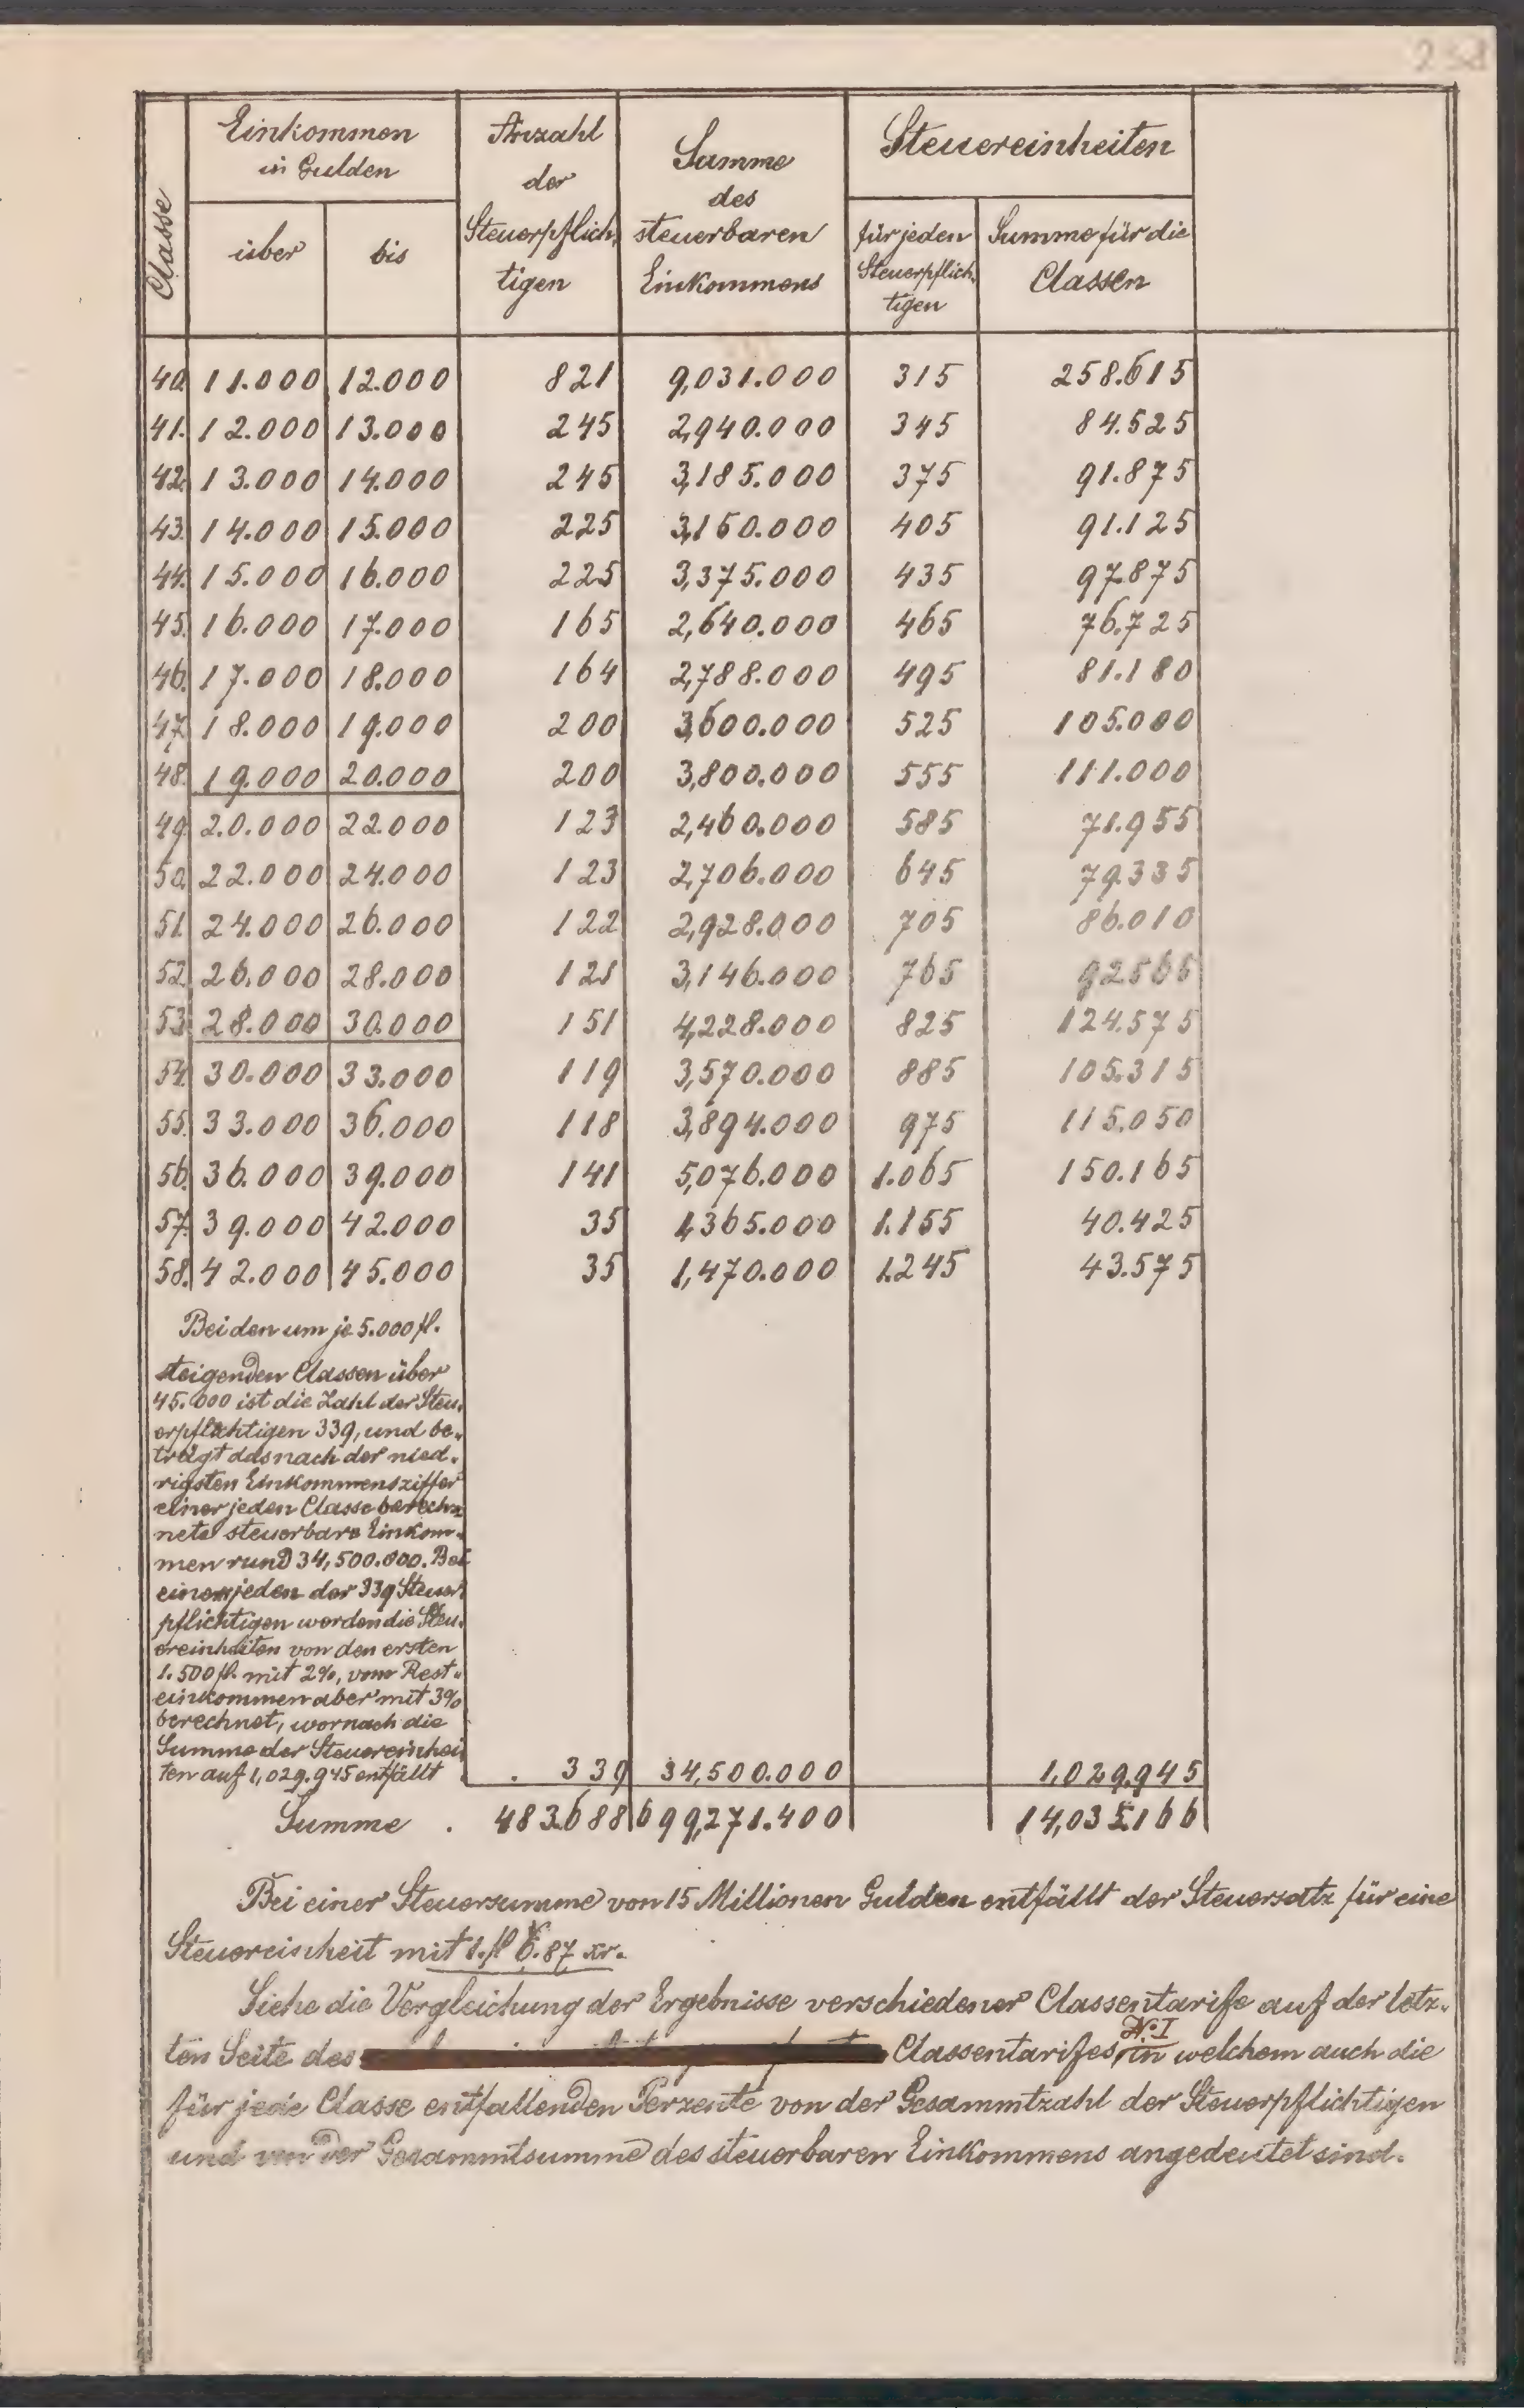 Classe
Einkommen in Gulden
über
bis
Anzahl der Steuerpflich, tigen
Summe des steuerbaren Einkommens
Steuereinheiten
für jeden Steuerpflich, tigen
Summe für die Classen
40. 11.000 12.000 821 9,031.000 315 258.615
41. 12.000 13.000 245 2,940.000 345 84.525
42. 13.000 14.000 245 3,185.000 375 91.875
43. 14.000 15.000 225 3,150.000 405 91.125
44. 15.000 16.000 225 3,375.000 435 97.875
45. 16.000 17.000 165 2,640.000 465 76.725
46. 17.000 18.000 164 2,788.000 495 81.180
47. 18.000 19.000 200 3,600.000 525 105.000
48. 19.000 20.000 200 3,800.000 555 111.000
49. 20.000 22.000 123 2,460.000 585 71.955
50. 22.000 24.000 123 2,706.000 645 79.335
51. 24.000 26.000 122 2,928.000 705 86.010
52. 26.000 28.000 121 3,146.000 765 92.565
53. 28.000 30.000 151 4,228.000 825 124.575
54. 30.000 33.000 119 3,570.000 885 105.315
55. 33.000 36.000 118 3,894.000 975 115.050
56. 36.000 39.000 141 5,076.000 1.065 150.165
57. 39.000 42.000 35 1,365.000 1.155 40.425
58. 42.000 45.000 35 1,470.000 1.245 43.575
Bei den um je 5.000 fl.
steigenden Classen über
45.000 ist die Zahl der Steu,
erpflichtigen 339, und be,
trägt das nach der nied,
rigsten Einkommensziffer
einer jeden Classe berech,
nete steuerbare Einkom,
men rund 34,500.000. Bei
einem jeden der 339 Steuer
pflichtigen werden die Steu,
ereinheiten von den ersten
1.500 fl. mit 2%, vom Rest,
einkommen aber mit 3%
berechnet, wornach die
Summe der Steuereinhei
ten auf 1,029.945 entfällt . 339 34,500.000 1,029.945
Summe . 483.688 699,271.400 14,035.166
Bei einer Steuersumme von 15 Millionen Gulden entfällt der Steuersatz für eine
Steuereinheit mit 1. fl 6.87 xr.
Siehe die Vergleichung der Ergebnisse verschiedener Classentarife auf der letz,
ten Seite des Classentarifes, No I in welchem auch die
für jede Classe entfallenden Perzente von der Gesammtzahl der Steuerpflichtigen
und von der Gesammtsumme des steuerbaren Einkommens angedeutet sind.